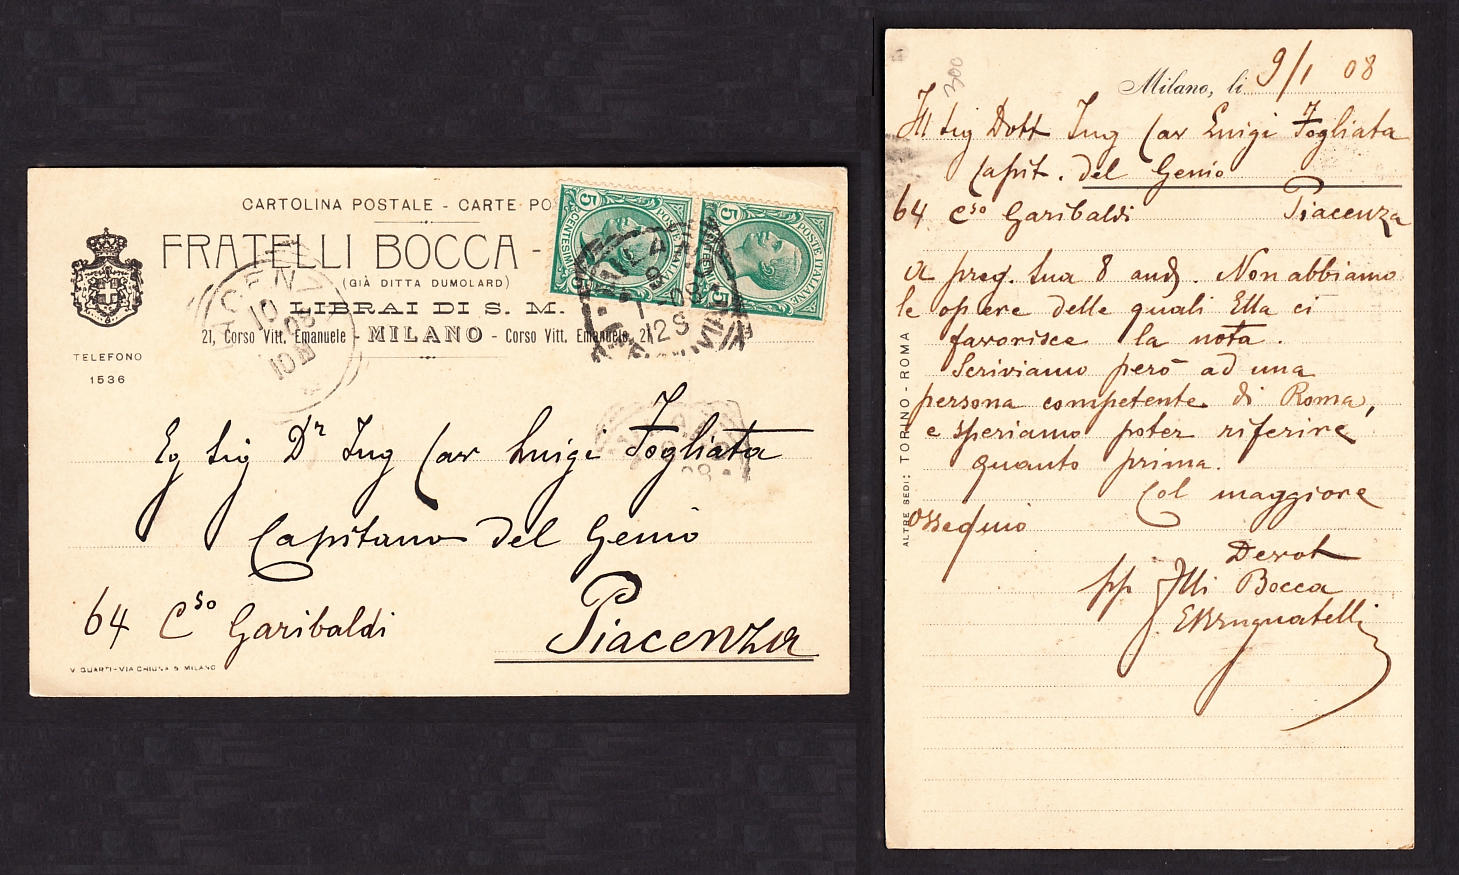 CARTOLINA POSTALE - CARTE PO
FRATELLI BOCCA -
(GIÀ DITTA DUMOLARD)
LIBRAI DI S. M.
21, Corso Vitt. Emanuele - MILANO - Corso Vitt. Emanuele, 21
TELEFONO
1536
5 CENTESIMI 5
POSTE ITALIANE
5
POSTE ITALIANE
MILANO
PIACENZA
10
08
10
Eg Sig Dr Ing Cav Luigi Fogliata
Capitano del Genio
64 Cso Garibaldi
Piacenza
V. GUARTI-VIA CHIUSA 5 MILANO
300
Milano, li 9/1 08
Ill Sig Dott Ing Cav Luigi Fogliata
Capit. del Genio
64 Cso Garibaldi Piacenza
A preg. Sua 8 and. Non abbiamo
le opere delle quali Ella ci
favorisce la nota.
Scriviamo però ad una
persona competente di Roma,
e speriamo poter riferire
quanto prima.
Col maggiore
ossequio
Devot
pp Flli Bocca
ALTRE SEDI: TORINO - ROMA